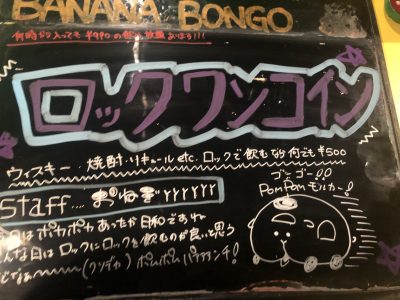 BANANA BONGO
何時から入っても ¥990の飲み放題あります!!!
ロックワンコイン
ウィスキー、焼酎、リキュール etc. ロックで飲むなら何でも¥500
staff... おねぎYYYYYY
ゴーゴー!!
PomPom モルカー!!
はポカポカあったか日和であれ
んな日はロックにロックを飲むのが良いと思う
(クソデカ) ポムポムパイパンチ!